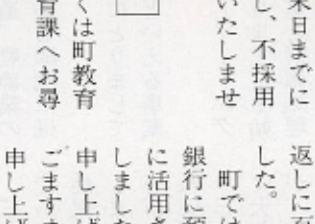 末日までに
し、不採用
いたしませ
くは町教育
育課へお尋
返しに
した。
町では
銀行に預
に活用さ
しました
申し上げ
ごます
申し上げ